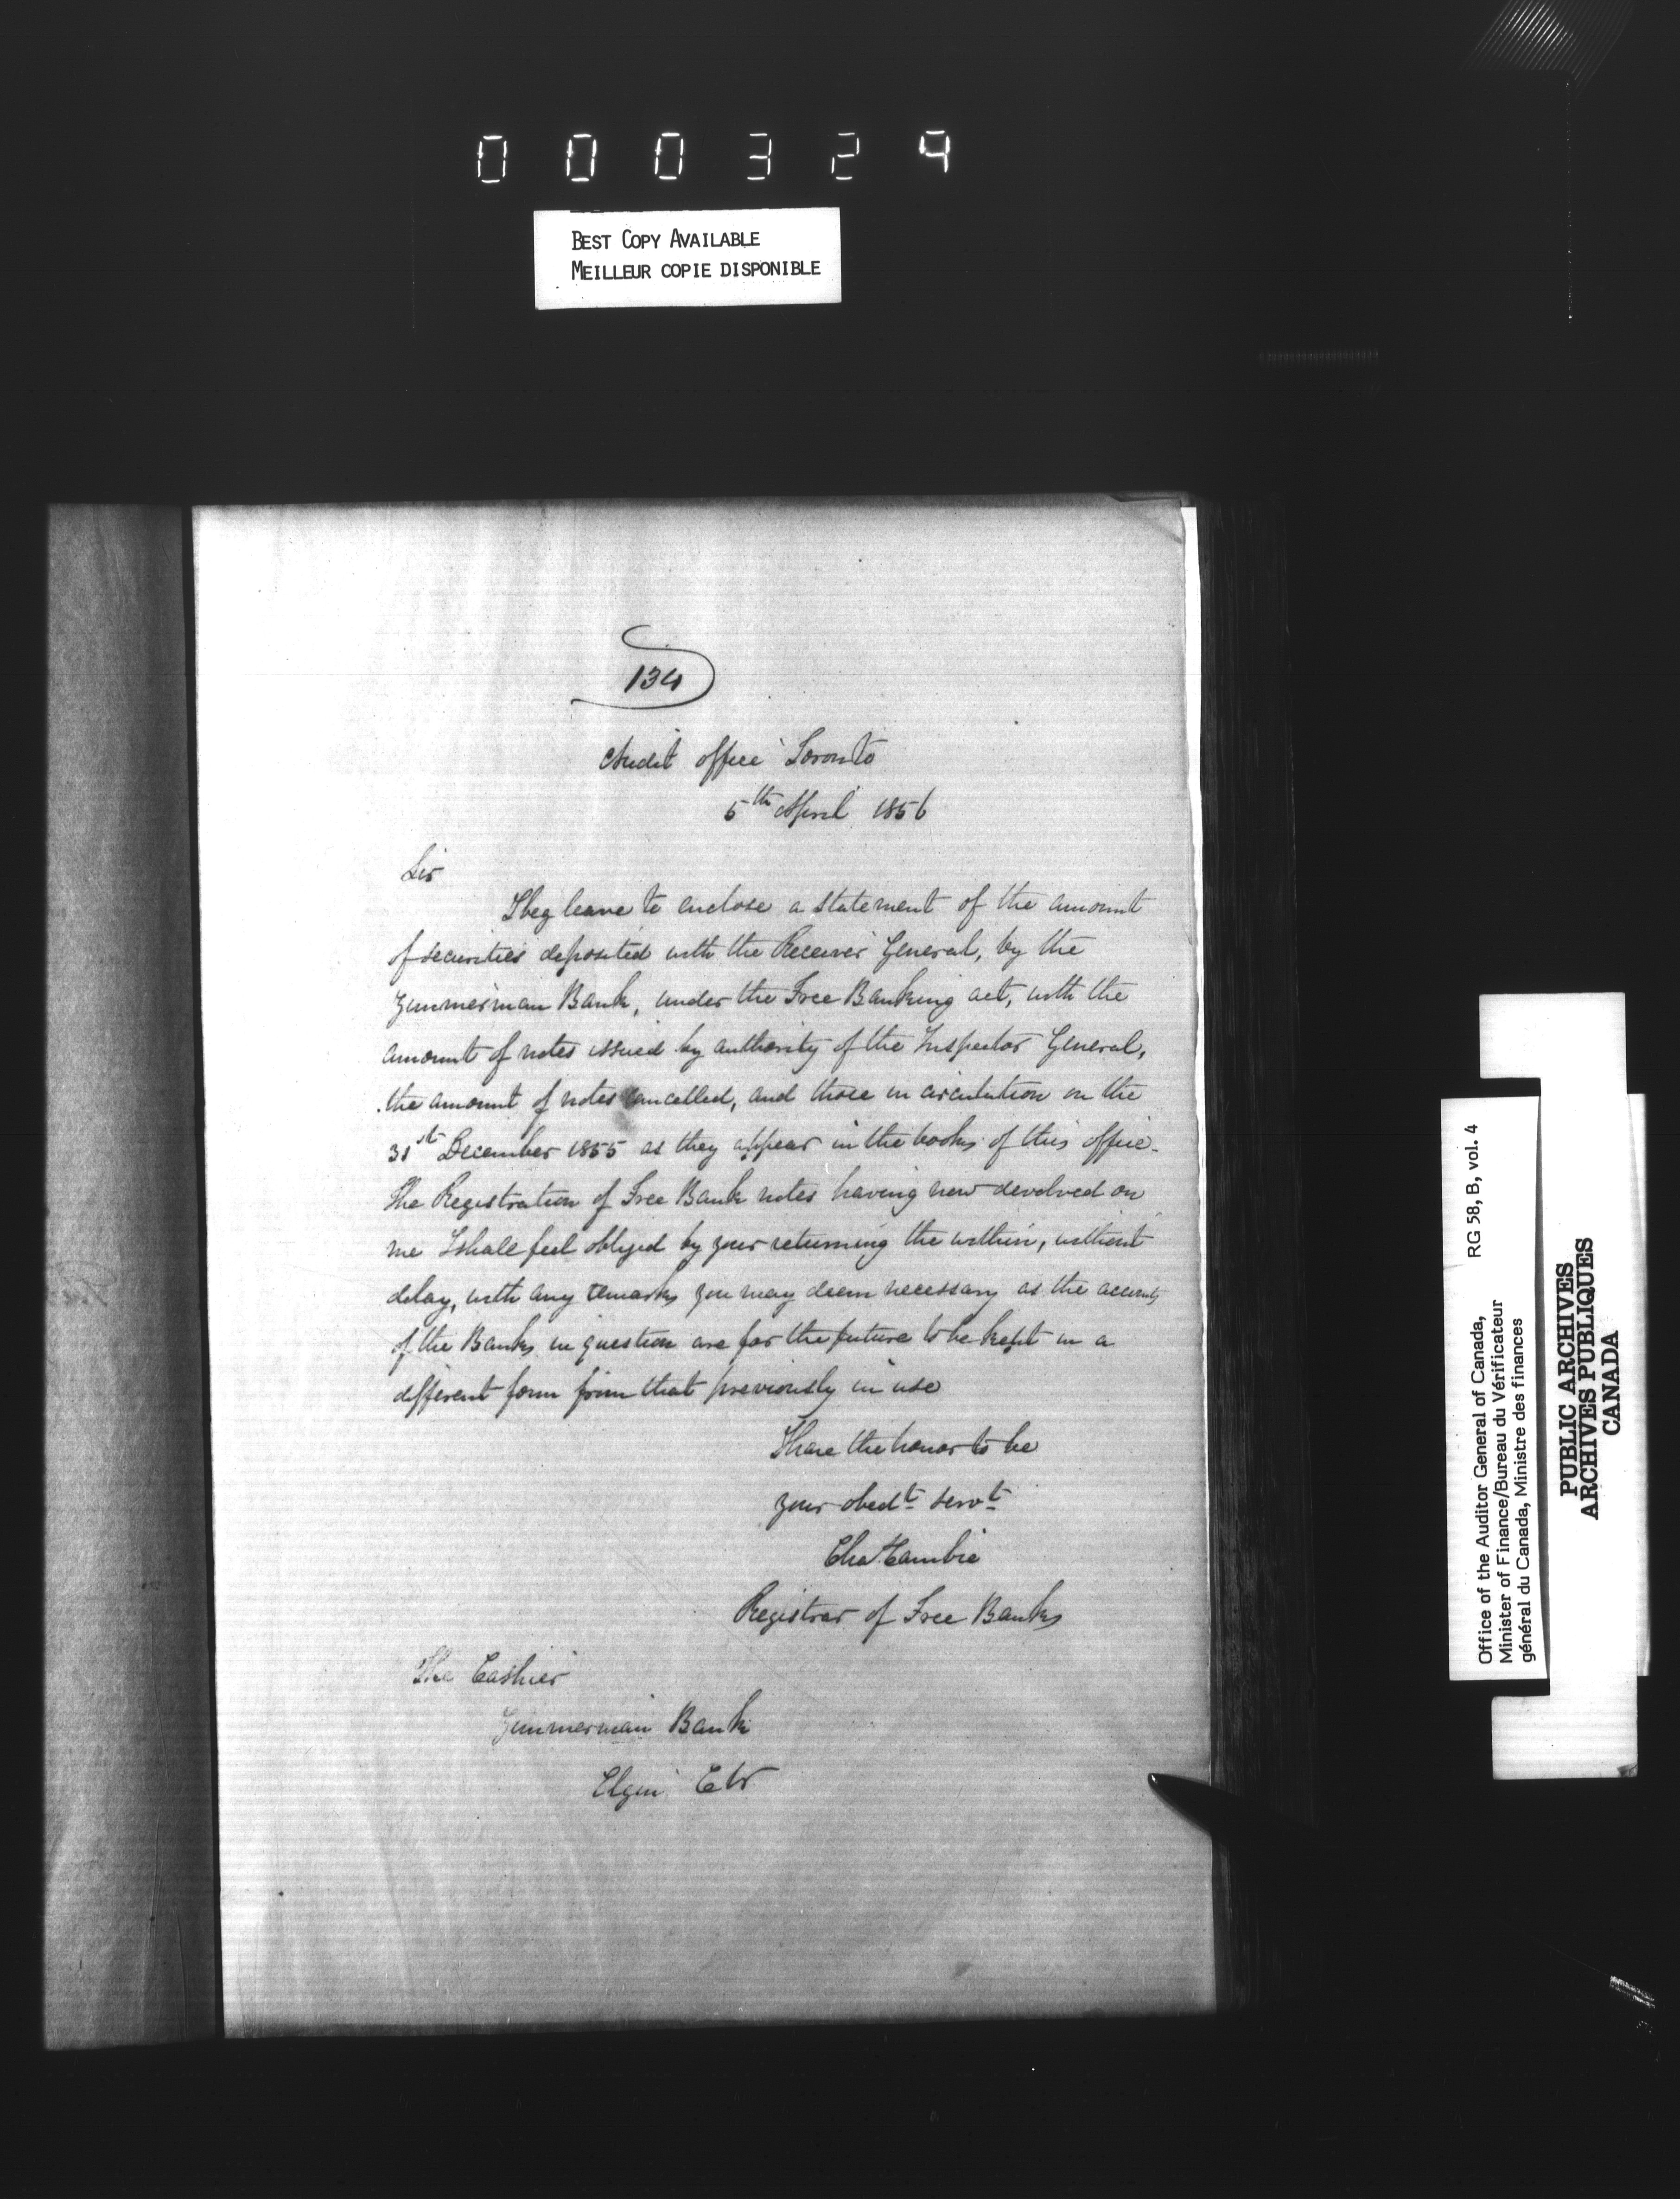 000324
BEST COPY AVAILABLE
MEILLEUR COPIE DISPONIBLE
134
Audit office Toronto
5th April 1856
Sir
I beg leave to enclose a statement of the amount
of securities deposited with the Receiver General, by the
Zimmerman Bank, under the Free Banking act, with the
amount of notes issued by authority of the Inspector General,
the amount of notes cancelled, and those in circulation on the
31st December 1855 as they appear in the books of this office.
The Registration of Free Bank notes having now devolved on
me I shall feel obliged by your returning the within, without
delay, with any remarks you may deem necessary as the accounts
of the Banks in question are for the future to be kept in a
different form from that previously in use
I have the honor to be
your obedt servt
Cha Cambie
Registrar of Free Banks
The Cashier
Zimmerman Bank
Elgin CW
Office of the Auditor General of Canada,
Minister of Finance/Bureau du Vérificateur
général du Canada, Ministre des finances
RG 58, B, vol. 4
PUBLIC ARCHIVES
ARCHIVES PUBLIQUES
CANADA